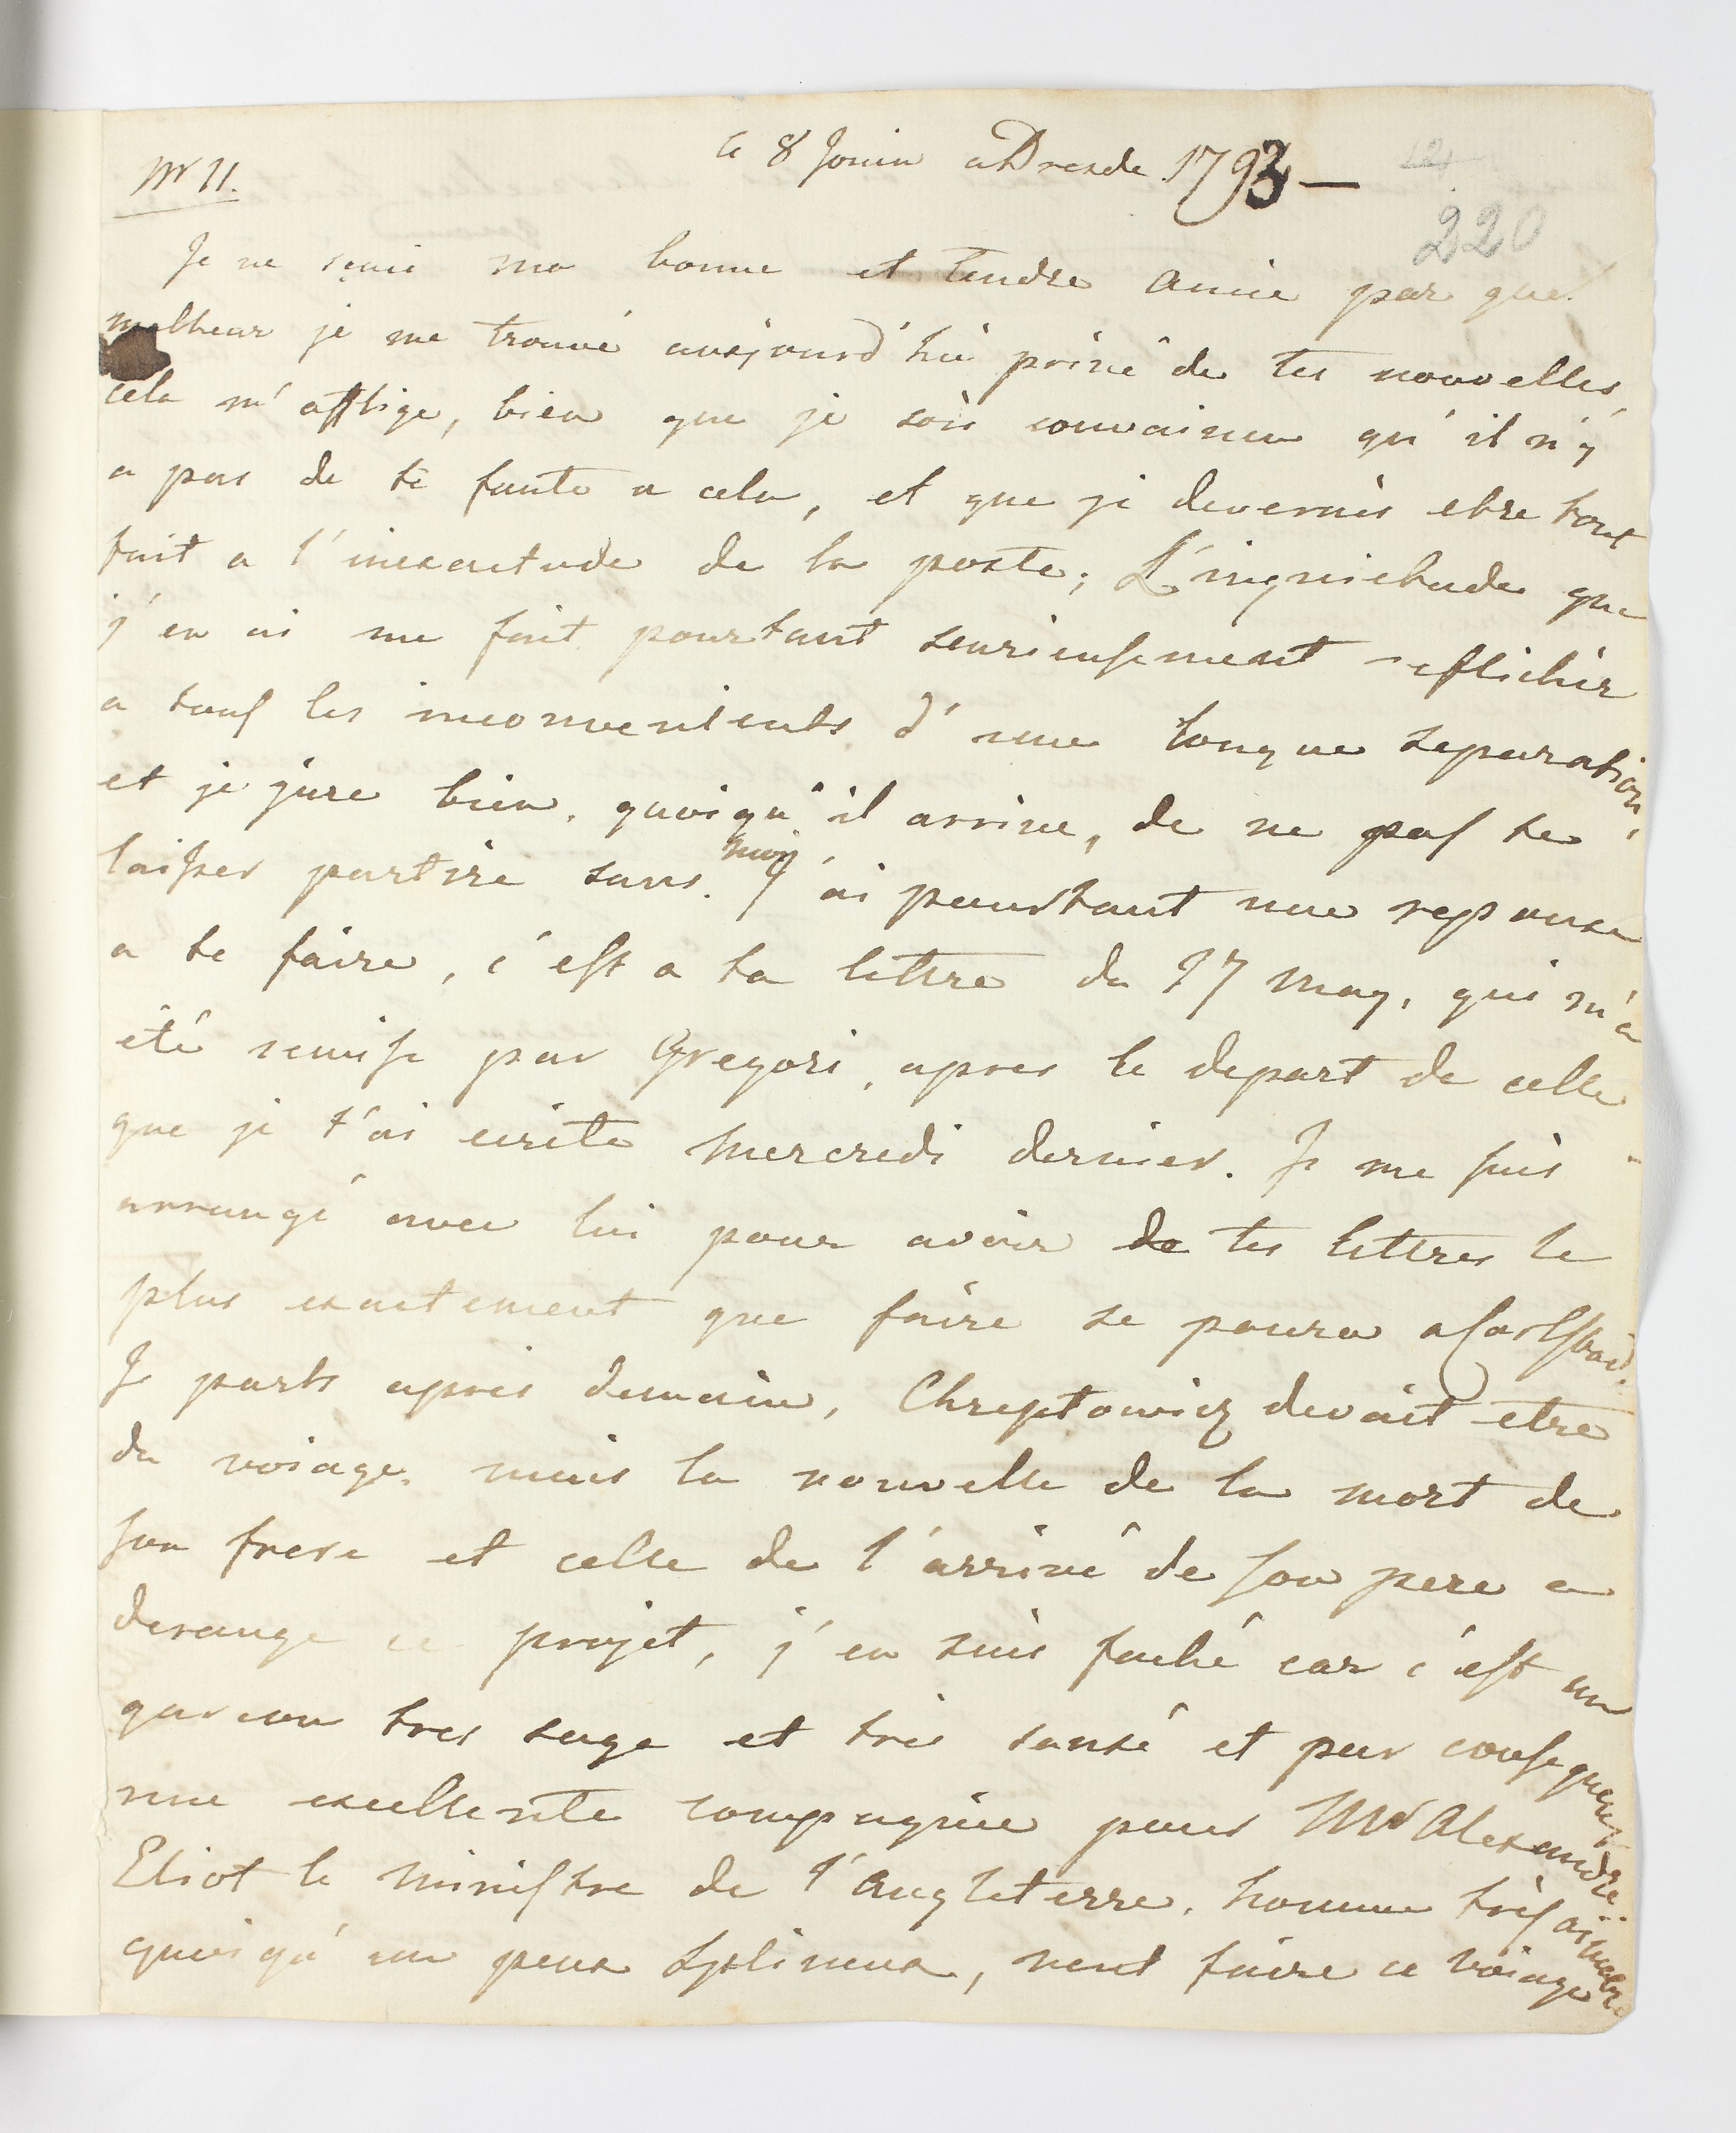 Nr 11.
ce 8 Jouin a Dresde 1793 —
220
Je ne scais ma bonne et tendre amie par quel
malheur je me trouve ausjourd'hui privé de tes nouvelles,
cela m'afflige, bien que je sois convaincu qu'il n'y
a pas de te faute a cela, et que je deverais etre tout
fait a l'inexactude de la poste; L'inquietude que
j'en ai me fait pourtant seurieusement reflechir
a tous les inconvenients d'une longue separation,
et je jure bien, quoiqu'il arrive, de ne pas te
laisser partire sans moy. J'ai pourtant une reponse
a te faire, c'est a ta lettre du 17 may, qui m'a
été remise par Gregori, apres le depart de celle
que je t'ai ecrite mercredi dernier. Je me suis
arrangé avec lui pour avoir de tes lettres le
plus exactement que faire se poura a Carlsbad.
Je parts apres demain, Chreptowicz devait etre
du voiage, mais la nouvelle de la mort de
son frere et celle de l'arrivé de son pere a
derange ce projet, j'en suis faché car c'est un
garcon tres sage et tres sensé et par consequent
une excellente compagnie pour Mr Alexandre.
Eliot le ministre de l'Angleterre, homme très aimable
quoiqu'un peux Spleneux, veut faire ce voiage